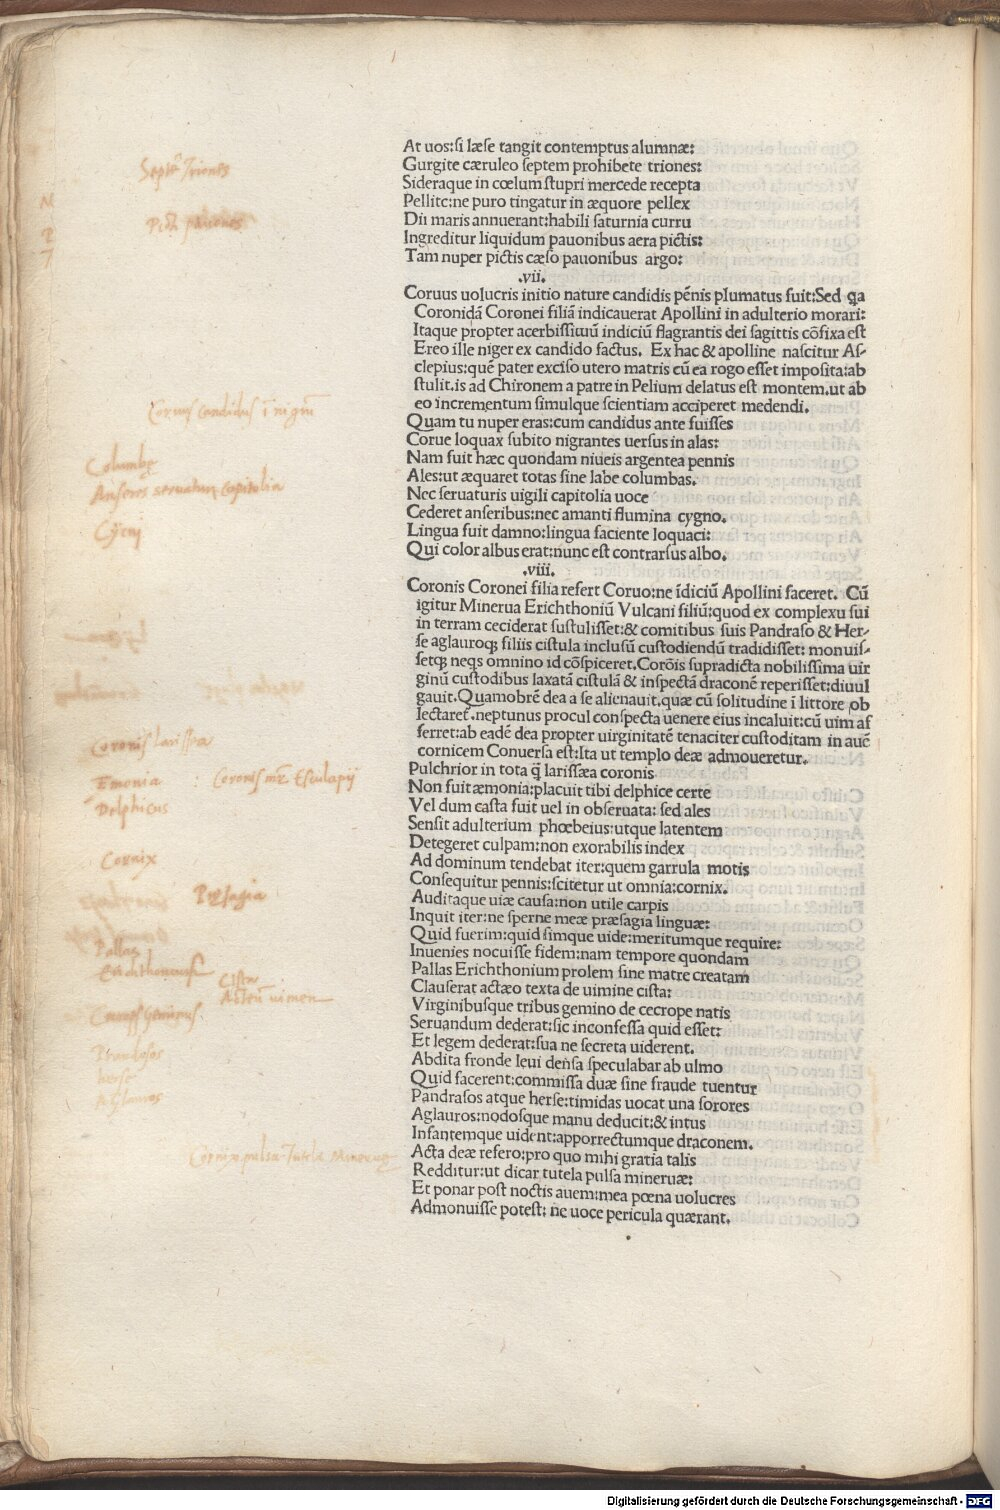 At uos:si læse tangit contemptus alumnæ:
Septē Triones
Gurgite cæruleo septem prohibete triones:
Sideraque in cœlum stupri mercede recepta
Pellite:ne puro tingatur in æquore pellex
Picti pauones
Dii maris annuerant:habili saturnia curru
Ingreditur liquidum pauonibus aera pictis:
Tam nuper pictis cæso pauonibus argo:
.vii.
Coruus uolucris initio nature candidis pēnis plumatus fuit:Sed qa
Coronidā Coronei filiā indicauerat Apollini in adulterio morari:
Itaque propter acerbissimū indiciū flagrantis dei sagittis cōfixa est
Ereo ille niger ex candido factus. Ex hac & apolline nascitur As-
clepius:quē pater exciso utero matris cū ea rogo esset imposita:ab
stulit.is ad Chironem a patre in Pelium delatus est montem.ut ab
eo incrementum simulque scientiam acciperet medendi.
Coruus candidus ī nigrū
Quam tu nuper eras:cum candidus ante fuisses
Corue loquax subito nigrantes uersus in alas:
Nam fuit hæc quondam niueis argentea pennis
Columbę
Ales:ut æquaret totas sine labe columbas.
Anseres seruatur capitolia
Nec seruaturis uigili capitolia uoce
Cederet anseribus:nec amanti flumina cygno.
Cycni
Lingua fuit damno:lingua faciente loquaci:
Qui color albus erat:nunc est contrarsus albo.
.viii.
Coronis Coronei filia refert Coruo:ne īdiciū Apollini faceret. Cū
igitur Minerua Erichthoniū Vulcani filiū:quod ex complexu sui
in terram ceciderat sustulisset:& comitibus suis Pandraso & Her-
se aglauroq; filiis cistula inclusū custodiendū tradidisset: monuis-
setq; neqs omnino id cōspiceret.Corōis supradicta nobilissima uir
ginū custodibus laxatā cistulā & inspectā draconē reperisset:diuul
gauit.Quamobrē dea a se alienauit.quæ cū solitudine ī littore ob
lectaret.neptunus procul conspecta uenere eius incaluit:cū uim af
ferret:ab eadē dea propter uirginitatē tenaciter custoditam in auē
cornicem Conuersa est:Ita ut templo deæ admoueretur.
Coronis larissea
Pulchrior in tota q̄ larissæa coronis
Emonia
Coronis mr̄ Esculapij
Non fuit æmonia:placuit tibi delphice certe
Delphicus
Vel dum casta fuit uel in obseruata: sed ales
Sensit adulterium phœbeius:utque latentem
Detegeret culpam:non exorabilis index
Cornix
Ad dominum tendebat iter:quem garrula motis
Consequitur pennis:scitetur ut omnia:cornix.
Auditaque uiæ causa:non utile carpis
Pręsagia
Inquit iter:ne sperne meæ præsagia linguæ:
Quid fuerim:quid simque uide:meritumque require:
Inuenies nocuisse fidem:nam tempore quondam
Pallas
Pallas Erichthonium prolem sine matre creatam
Erichthonius
Cista
Clauserat actæo texta de uimine cista:
Acteū uimen
Virginibusque tribus gemino de cecrope natis
Cecrops Geminus
Seruandum dederat:sic inconfessa quid esset:
Et legem dederat:sua ne secreta uiderent.
Abdita fronde leui densa speculabar ab ulmo
Quid facerent:commissa duæ sine fraude tuentur
Phandasos
Pandrasos atque herse:timidas uocat una sorores
herse
Aglauros
Aglauros:nodosque manu deducit:& intus
Infantemque uident:apporrectumque draconem.
Acta deæ refero:pro quo mihi gratia talis
Cornix pulsa Tutela Mineruę
Redditur:ut dicar tutela pulsa mineruæ:
Et ponar post noctis auem:mea pœna uolucres
Admonuisse potest: ne uoce pericula quærant.
Digitalisierung gefördert durch die Deutsche Forschungsgemeinschaft - DFG